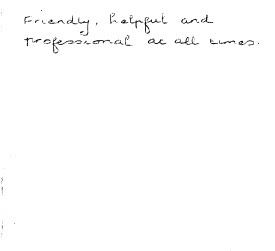 Friendly, helpful and
professional at all times.